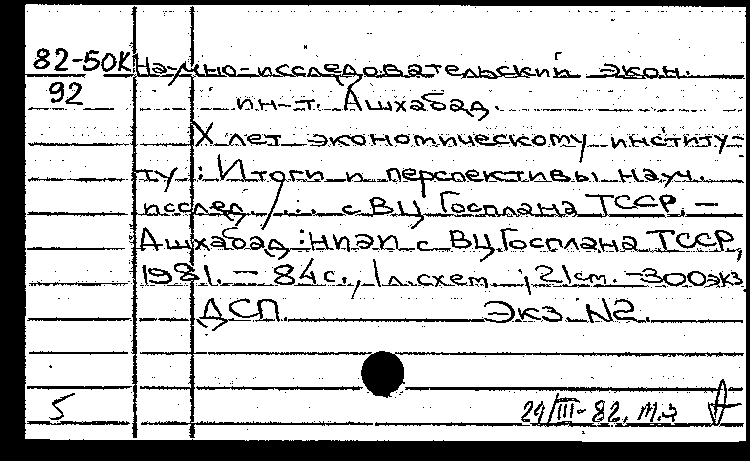 82-50К Научно-исследовательский экон.
92 ин-т. Ашхабад.
X лет экономическому институ-
ту : Итоги и перспективы науч.
исслед. /... с ВЦ Госплана ТССР. –
Ашхабад : НИЭИ с ВЦ Госплана ТССР,
1981. – 84 с., 1 л. схем. ; 21 ст. – 300 экз
ДСП. Экз. N2.
5 /III-82.